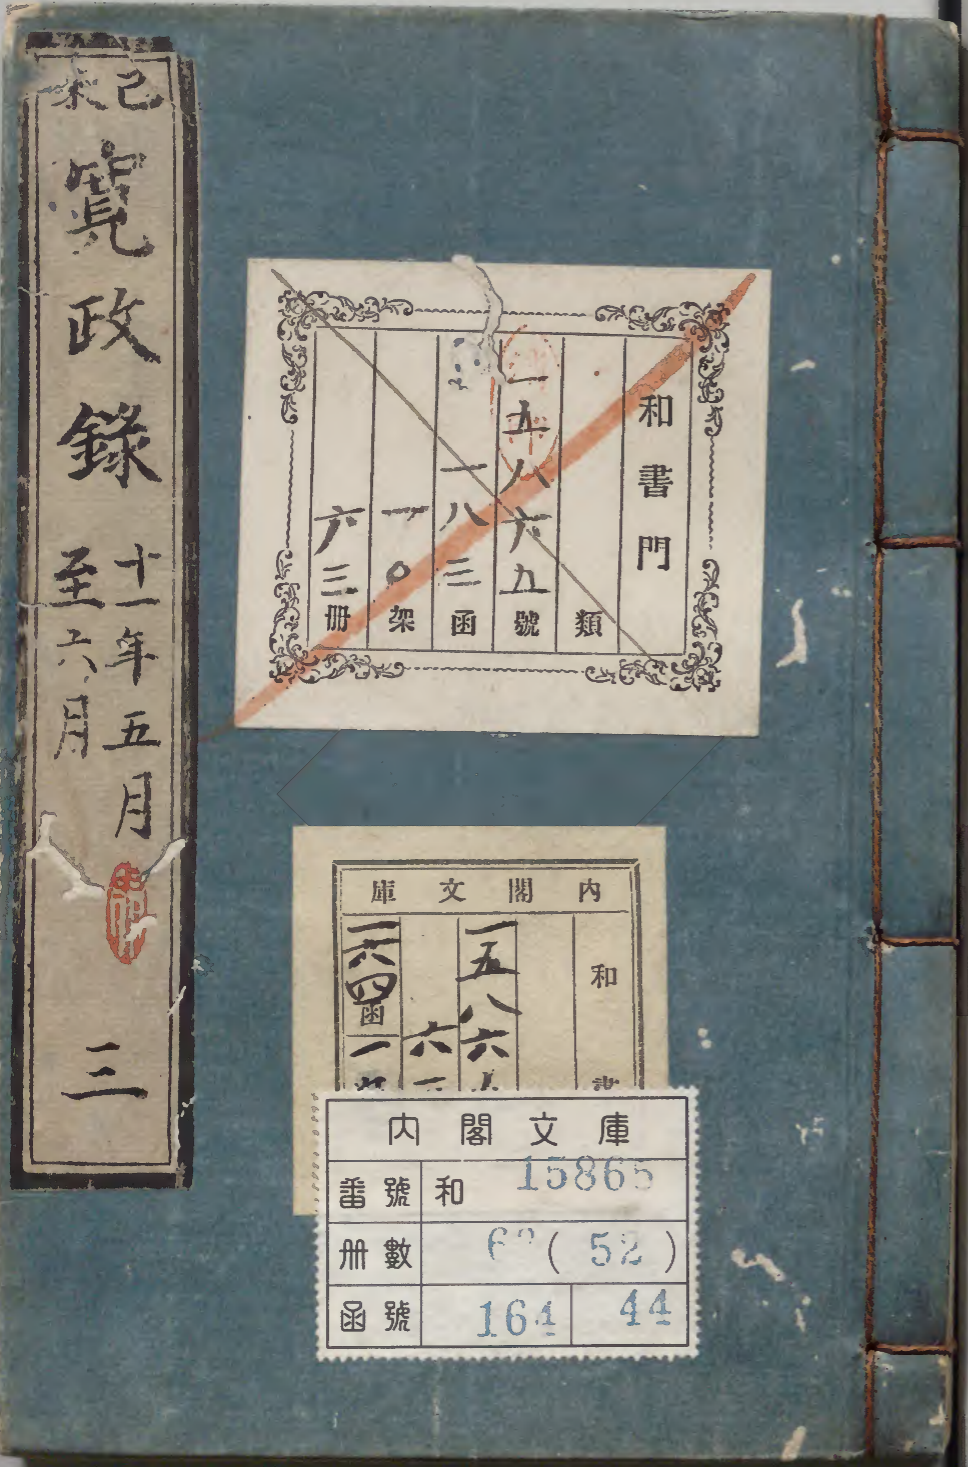 己未
寛政錄
十一年五月
至六月
三
和書門
類
一五八六九號
一八三函
一〇架
六三册
内閣文庫
和
一五八六
六
一六四函
一
内閣文庫
番號 和 15865
册數 (52)
函號 164 44